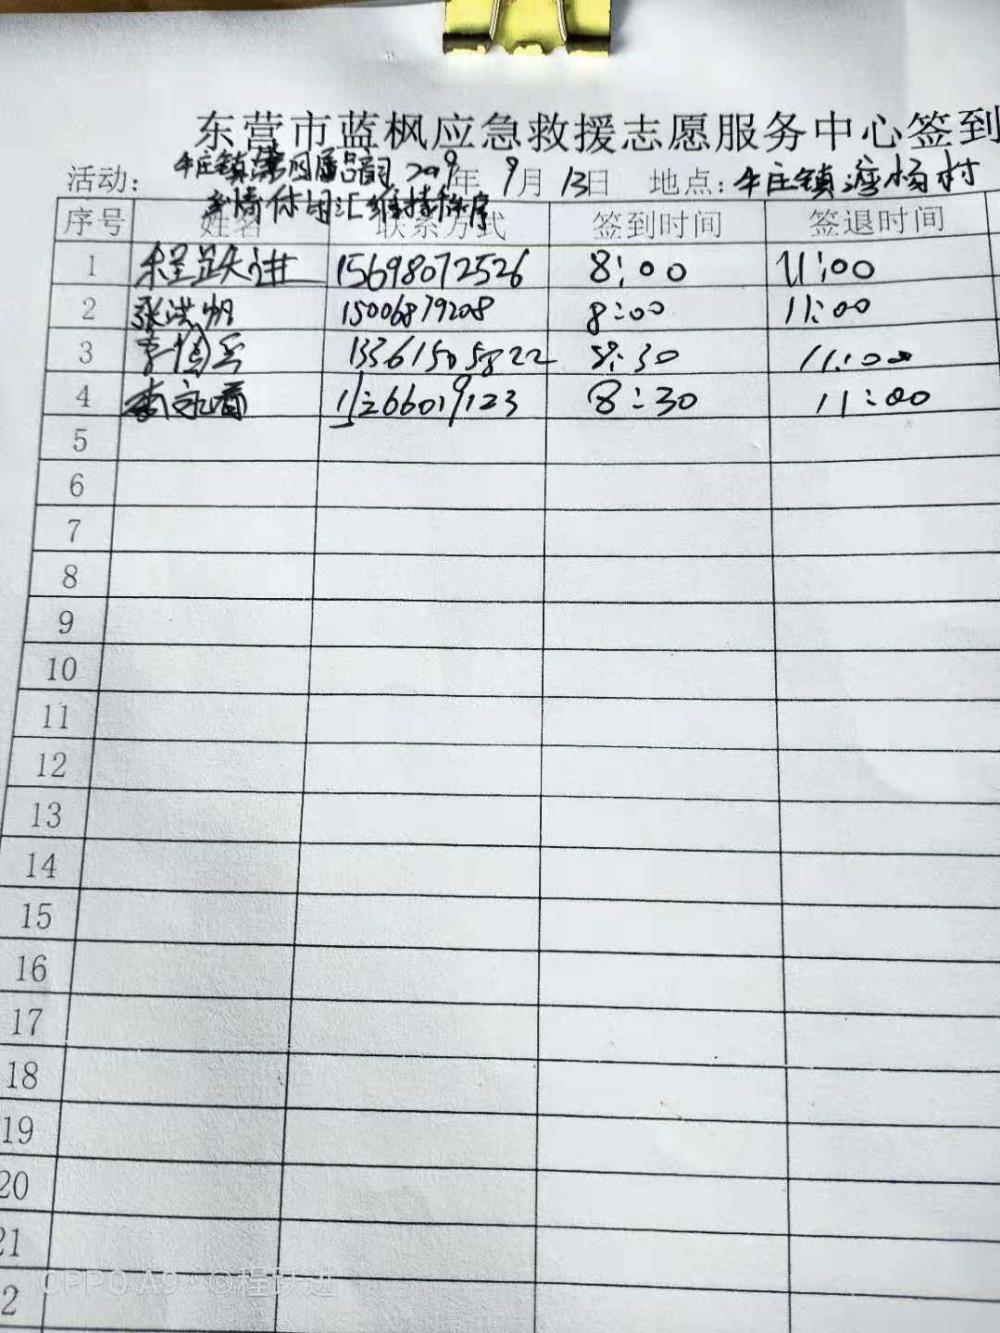 东营市蓝枫应急救援志愿服务中心签到
活动: 牛庄镇第四届吕剧 2019年 9月 13日 地点: 牛庄镇 杨村
汇 维持秩序
序号 姓名 联系方式 签到时间 签退时间
1 程跃进 15698072526 8:00 11:00
2 张洪帆 15006879208 8:00 11:00
3 李 13361505822 8:30 11:00
4 李永 8:30 11:00
5
6
7
8
9
10
11
12
13
14
15
16
17
18
19
20
21
2
OPPO A9 · ©程跃进